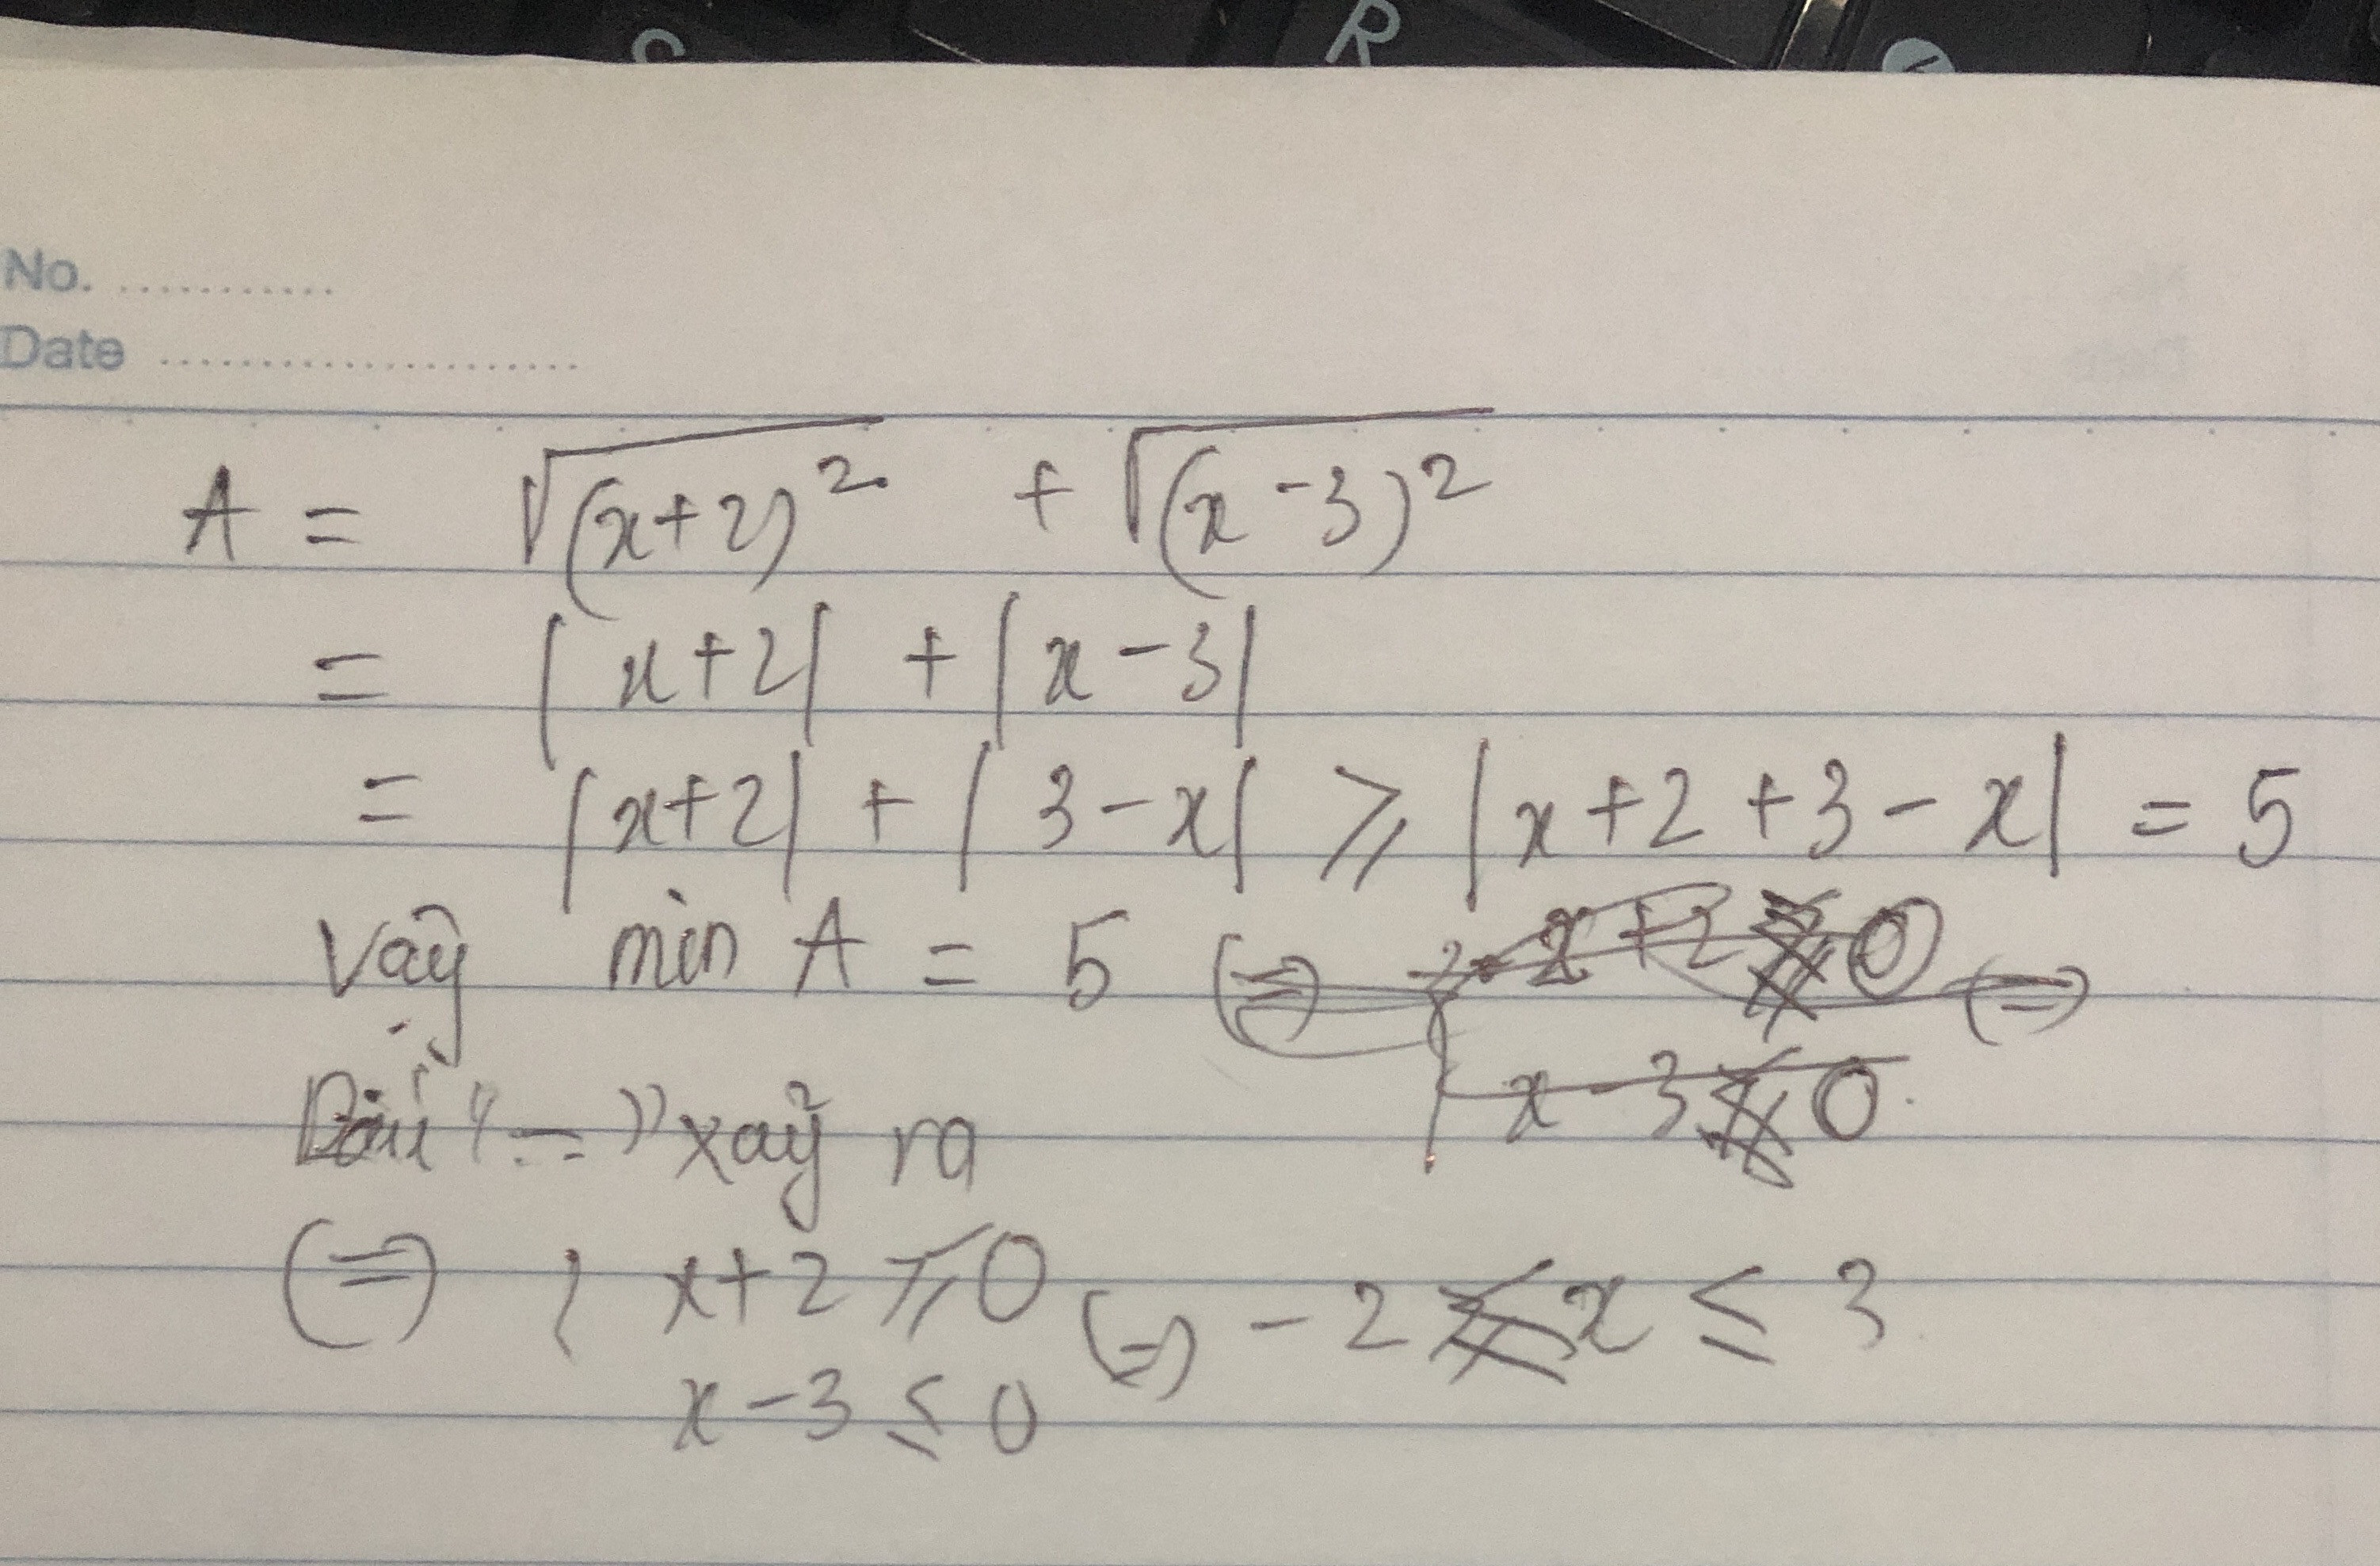 R
No. ...........
Date .....................
A = √(x+2)² + √(x-3)²
= |x+2| + |x-3|
= |x+2| + |3-x| ⩾ |x+2+3-x| = 5
Vậy min A = 5
Dấu "=" xảy ra
(=) { x+2 ⩾ 0 (=) -2 ≤ x ≤ 3
x-3 ≤ 0